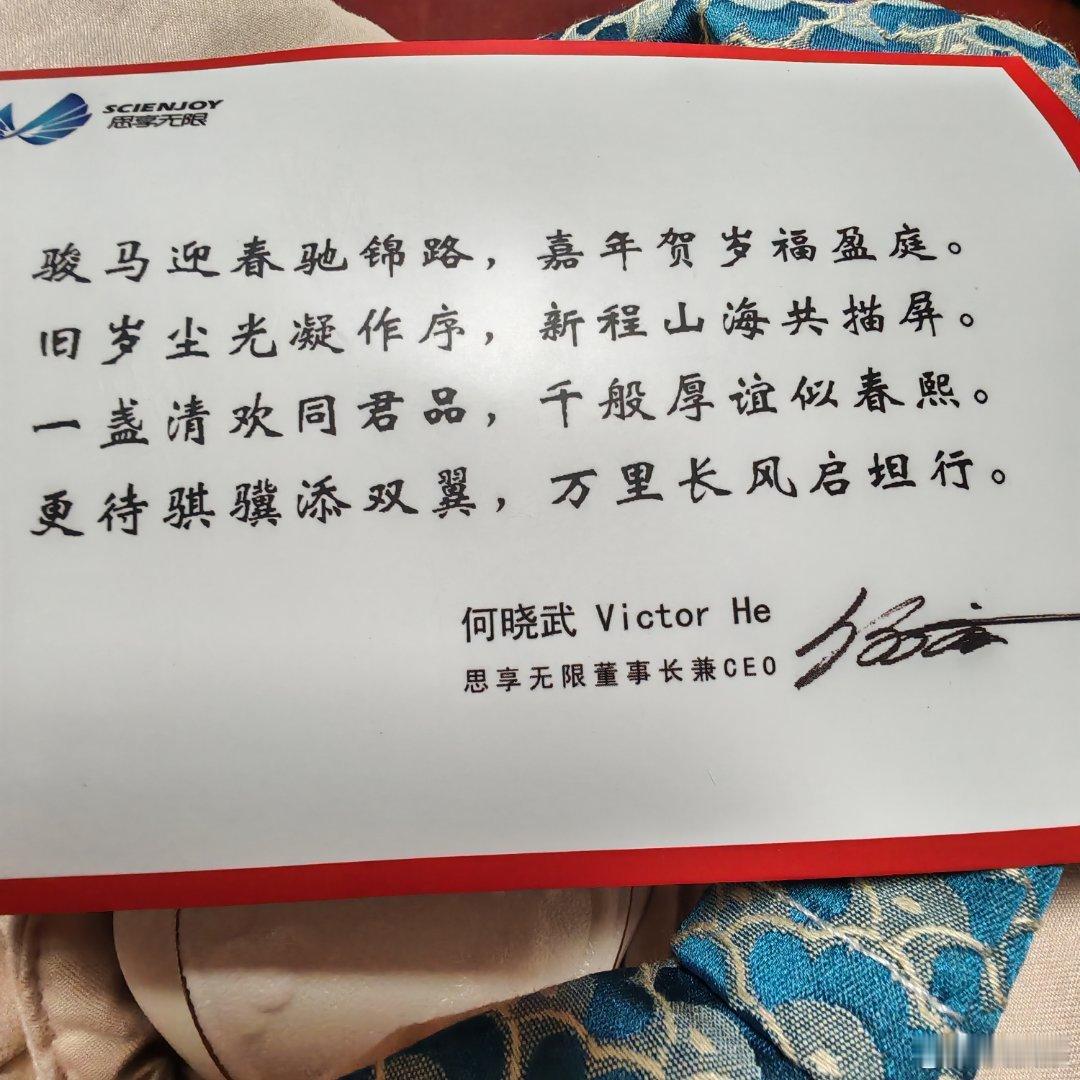 SCIENJOY
思享无限
骏马迎春驰锦路，嘉年贺岁福盈庭。
旧岁尘光凝作序，新程山海共描屏。
一盏清欢同君品，千般厚谊似春熙。
更待骐骥添双翼，万里长风启坦行。
何晓武 Victor He
思享无限董事长兼CEO